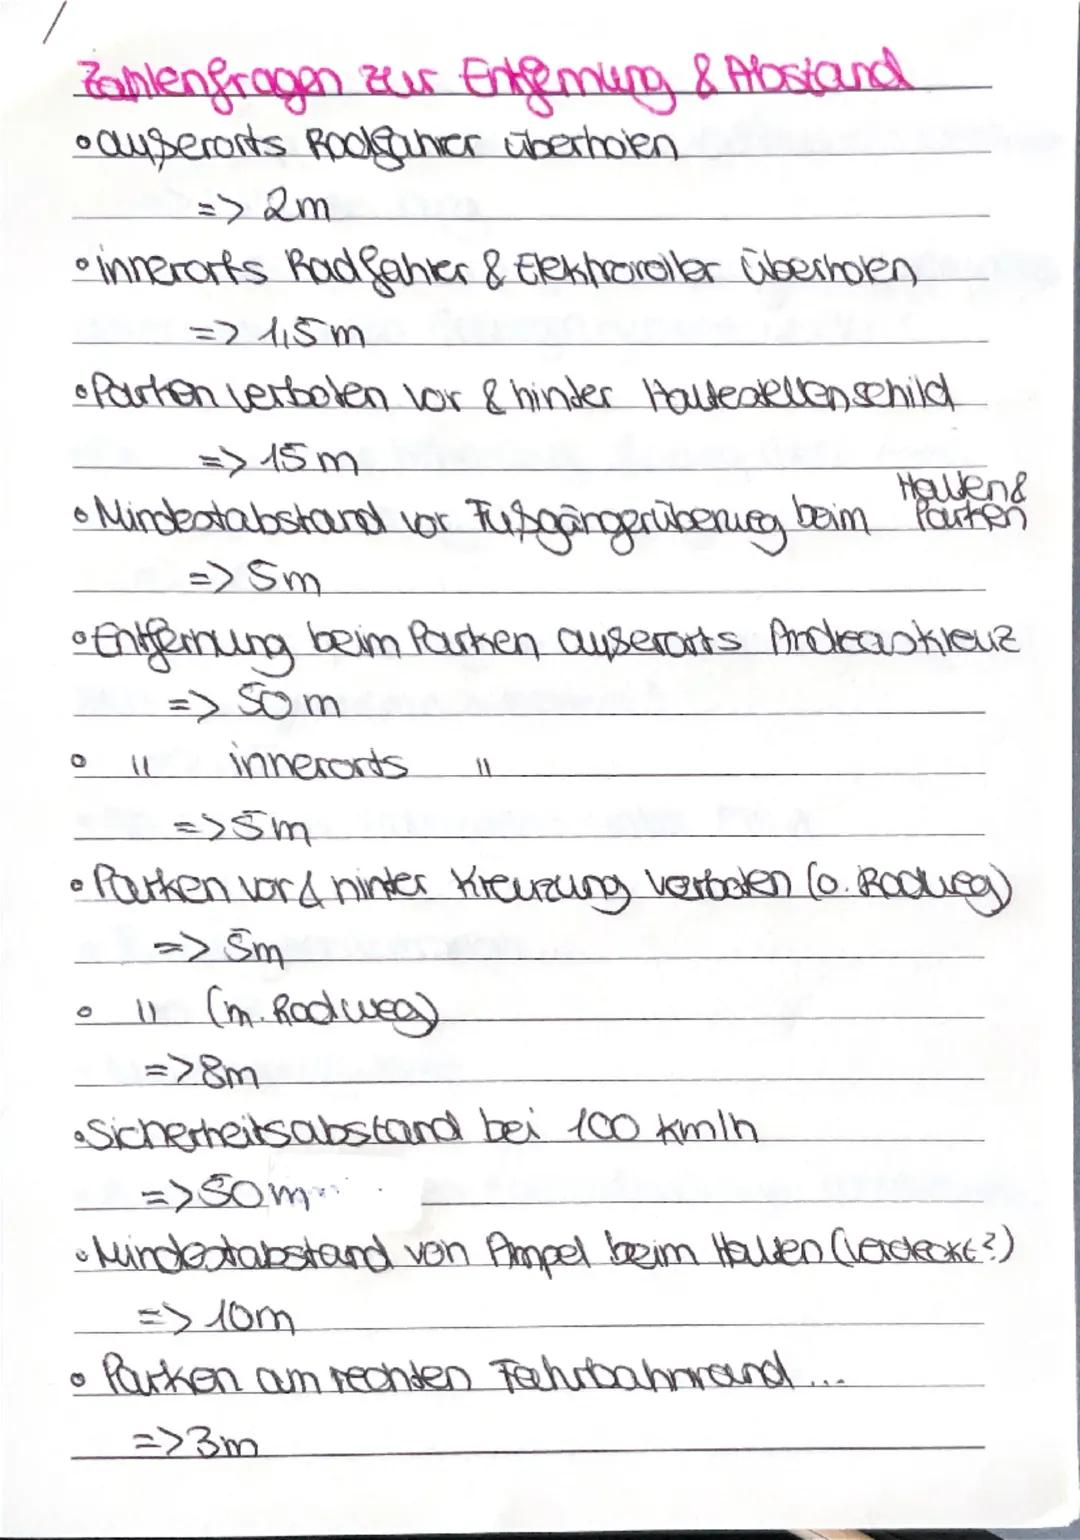 Zahlenfragen zur Entfernung & Abstand
• außerorts Radfahrer überholen
=> 2m
• innerorts Radfahrer & Elektroroller überholen
=> 1,5m
• Parken verboten vor & hinder Haltestellenschild
=> 15m
• Mindestabstand vor Fußgängerüberweg beim Halten & Parken
=> 5m
• Entfernung beim Parken außerorts Andreaskreuz
=> 50m
• " innerorts "
=> 5m
• Parken vor & hinter Kreuzung verboten (o. Radweg)
=> 5m
• " (m. Radweg)
=> 8m
• Sicherheitsabstand bei 100 km/h
=> 50m
• Mindestabstand von Ampel beim Halten (verdeckt?)
=> 10m
• Parken am rechten Fahrbahnrand ...
=> 3m